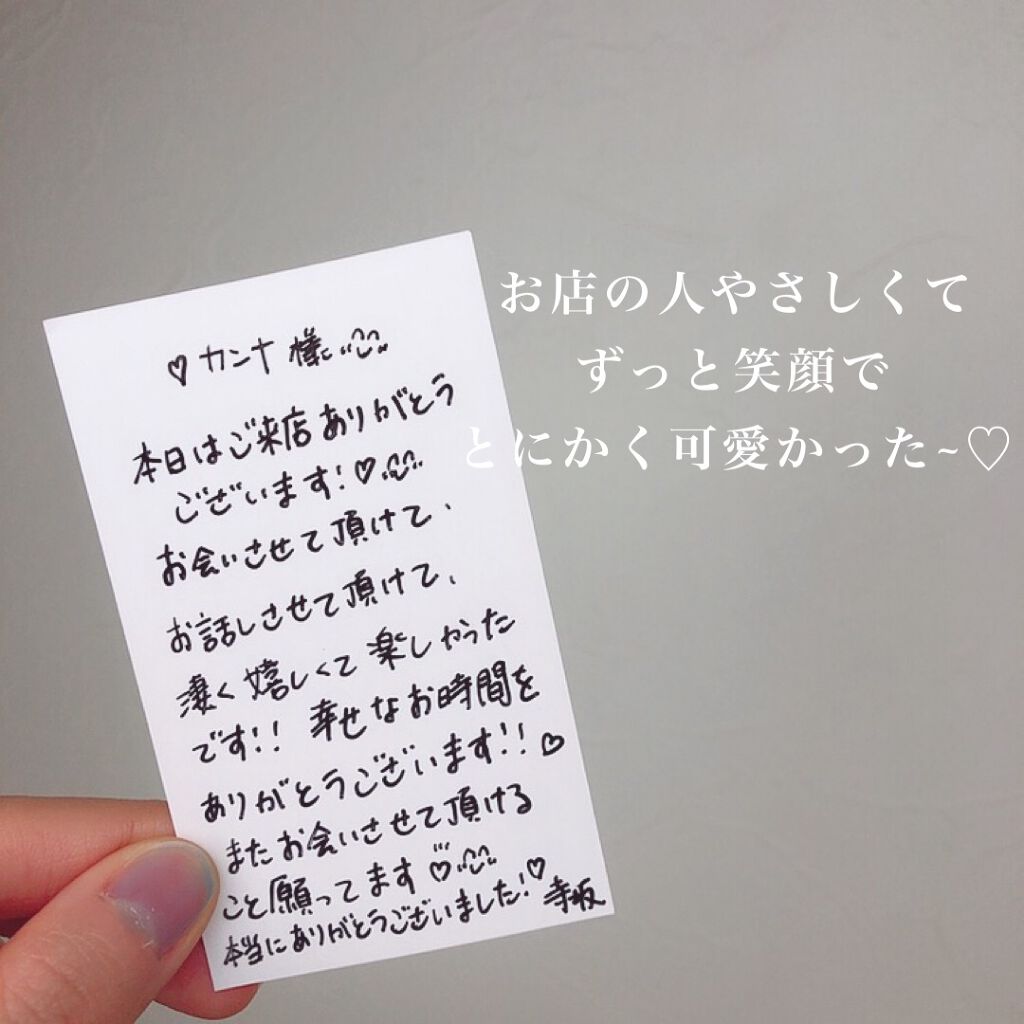 ♡カンナ 様
本日はご来店ありがとう
ございます!♡
お会いさせて頂けて、
お話しさせて頂けて、
凄く嬉しくて楽しかった
です!! 幸せなお時間を
ありがとうございます!!♡
またお会いさせて頂ける
こと願ってます♡
本当にありがとうございました!♡ 寺坂
お店の人やさしくて
ずっと笑顔で
とにかく可愛かった~♡